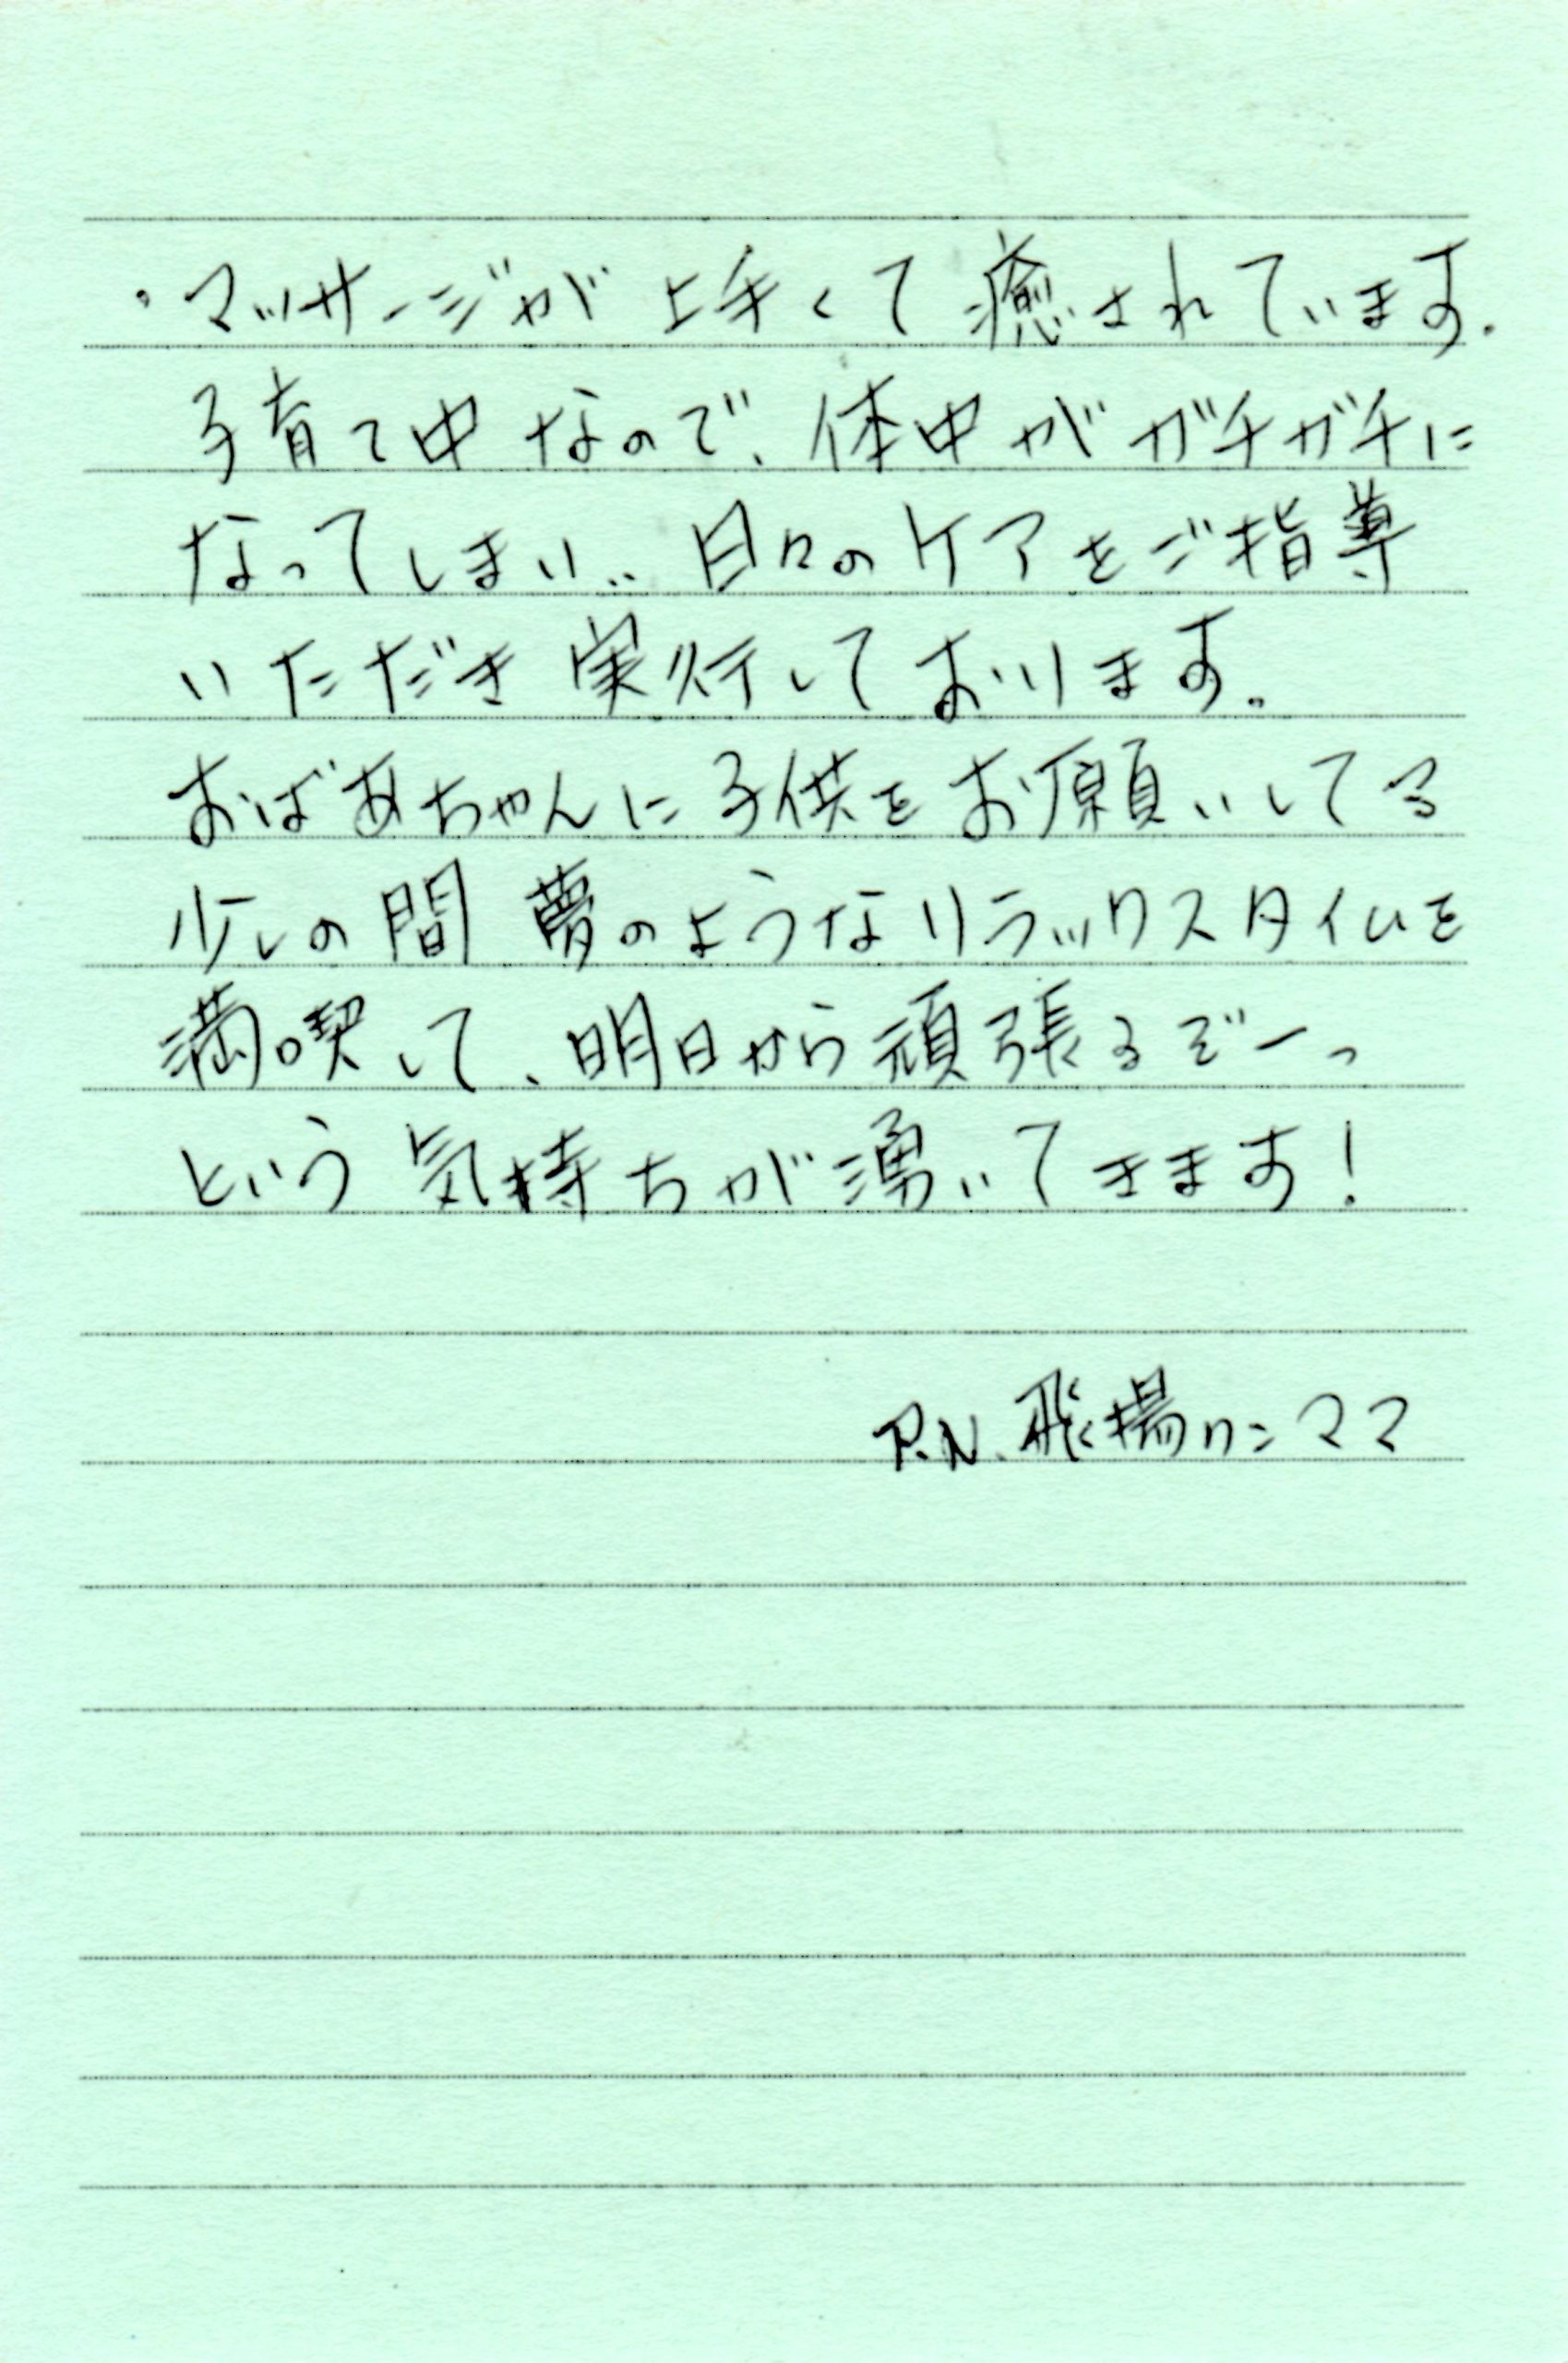 ・マッサージが上手くて癒されています.
子育て中なので、体中がガチガチに
なってしまい.. 日々のケアをご指導
いただき実行しております。
おばあちゃんに子供をお願いしてる
少しの間 夢のようなリラックスタイムを
満喫して、明日から頑張るぞーっ
という気持ちが湧いてきます!
P.N. 飛揚ママ